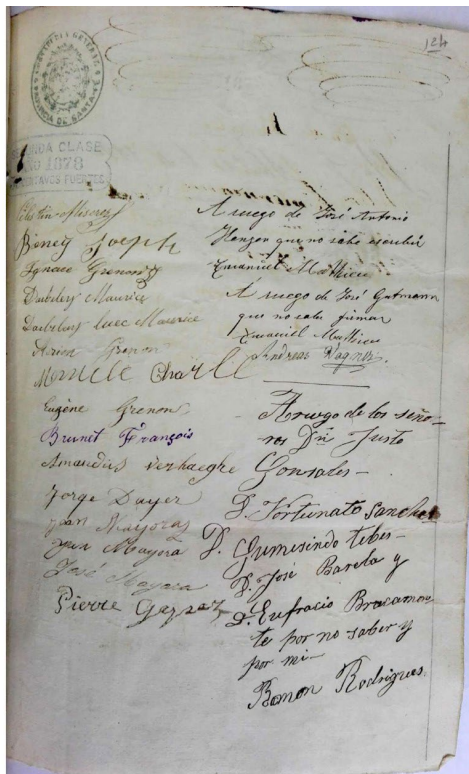 124
SEGUNDA CLASE
AÑO 1878
CENTAVOS FUERTES
Celestin Miserez
Boney Joseph
Ignace Grenon
Maurice
Maurice
Grenon
Charle
Eugène Grenon
Brunet François
Amandus Verhaeghe
Jorge Dayer
Juan Mayoraz
Juan Mayora
José Mayora
Pierre Gaspoz
A ruego de José Antonio
Henzen que no sabe escribir
Emaniel Mathieu
A ruego de José Gutmann
que no sabe firmar
Emaniel Mathieu
Andreas Wagner.
A ruego de los seño-
res Dn Justo
Gonsales-
D. Fortunato Sanchez
D. Gumesindo
D. José Barela y
D. Eufracio Bracamon
te por no saber y
por mi-
Ramon Rodrigues.